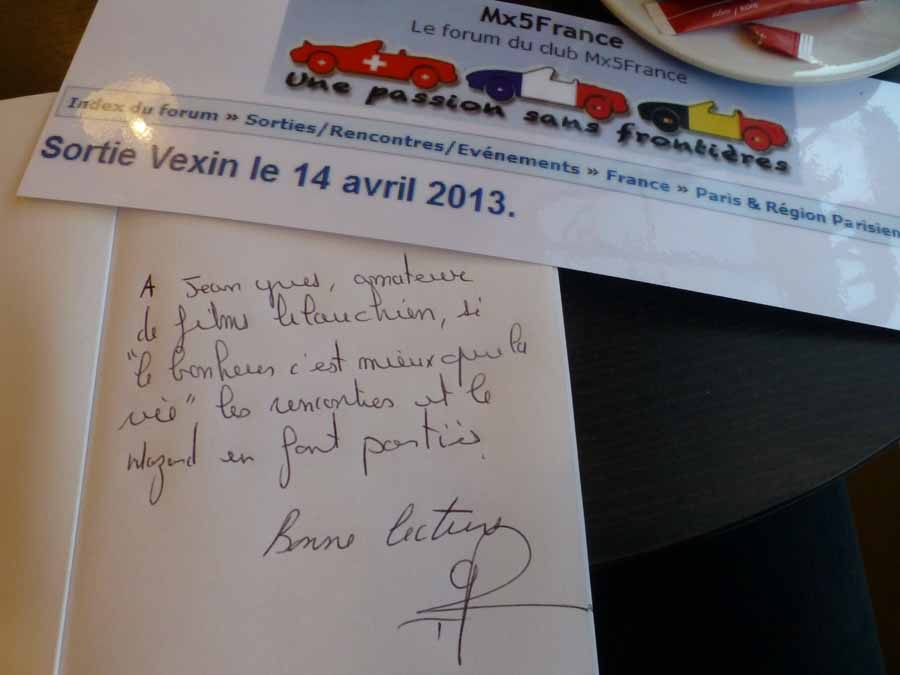 Mx5France
Le forum du club Mx5France
Une passion sans frontières
Index du forum » Sorties/Rencontres/Evénements » France » Paris & Région Parisien
Sortie Vexin le 14 avril 2013.
A Jean yves, amateur
de films, si
"le bonheur c'est mieux que la
vie" les rencontres et le
en font parties.
Bonne lecture